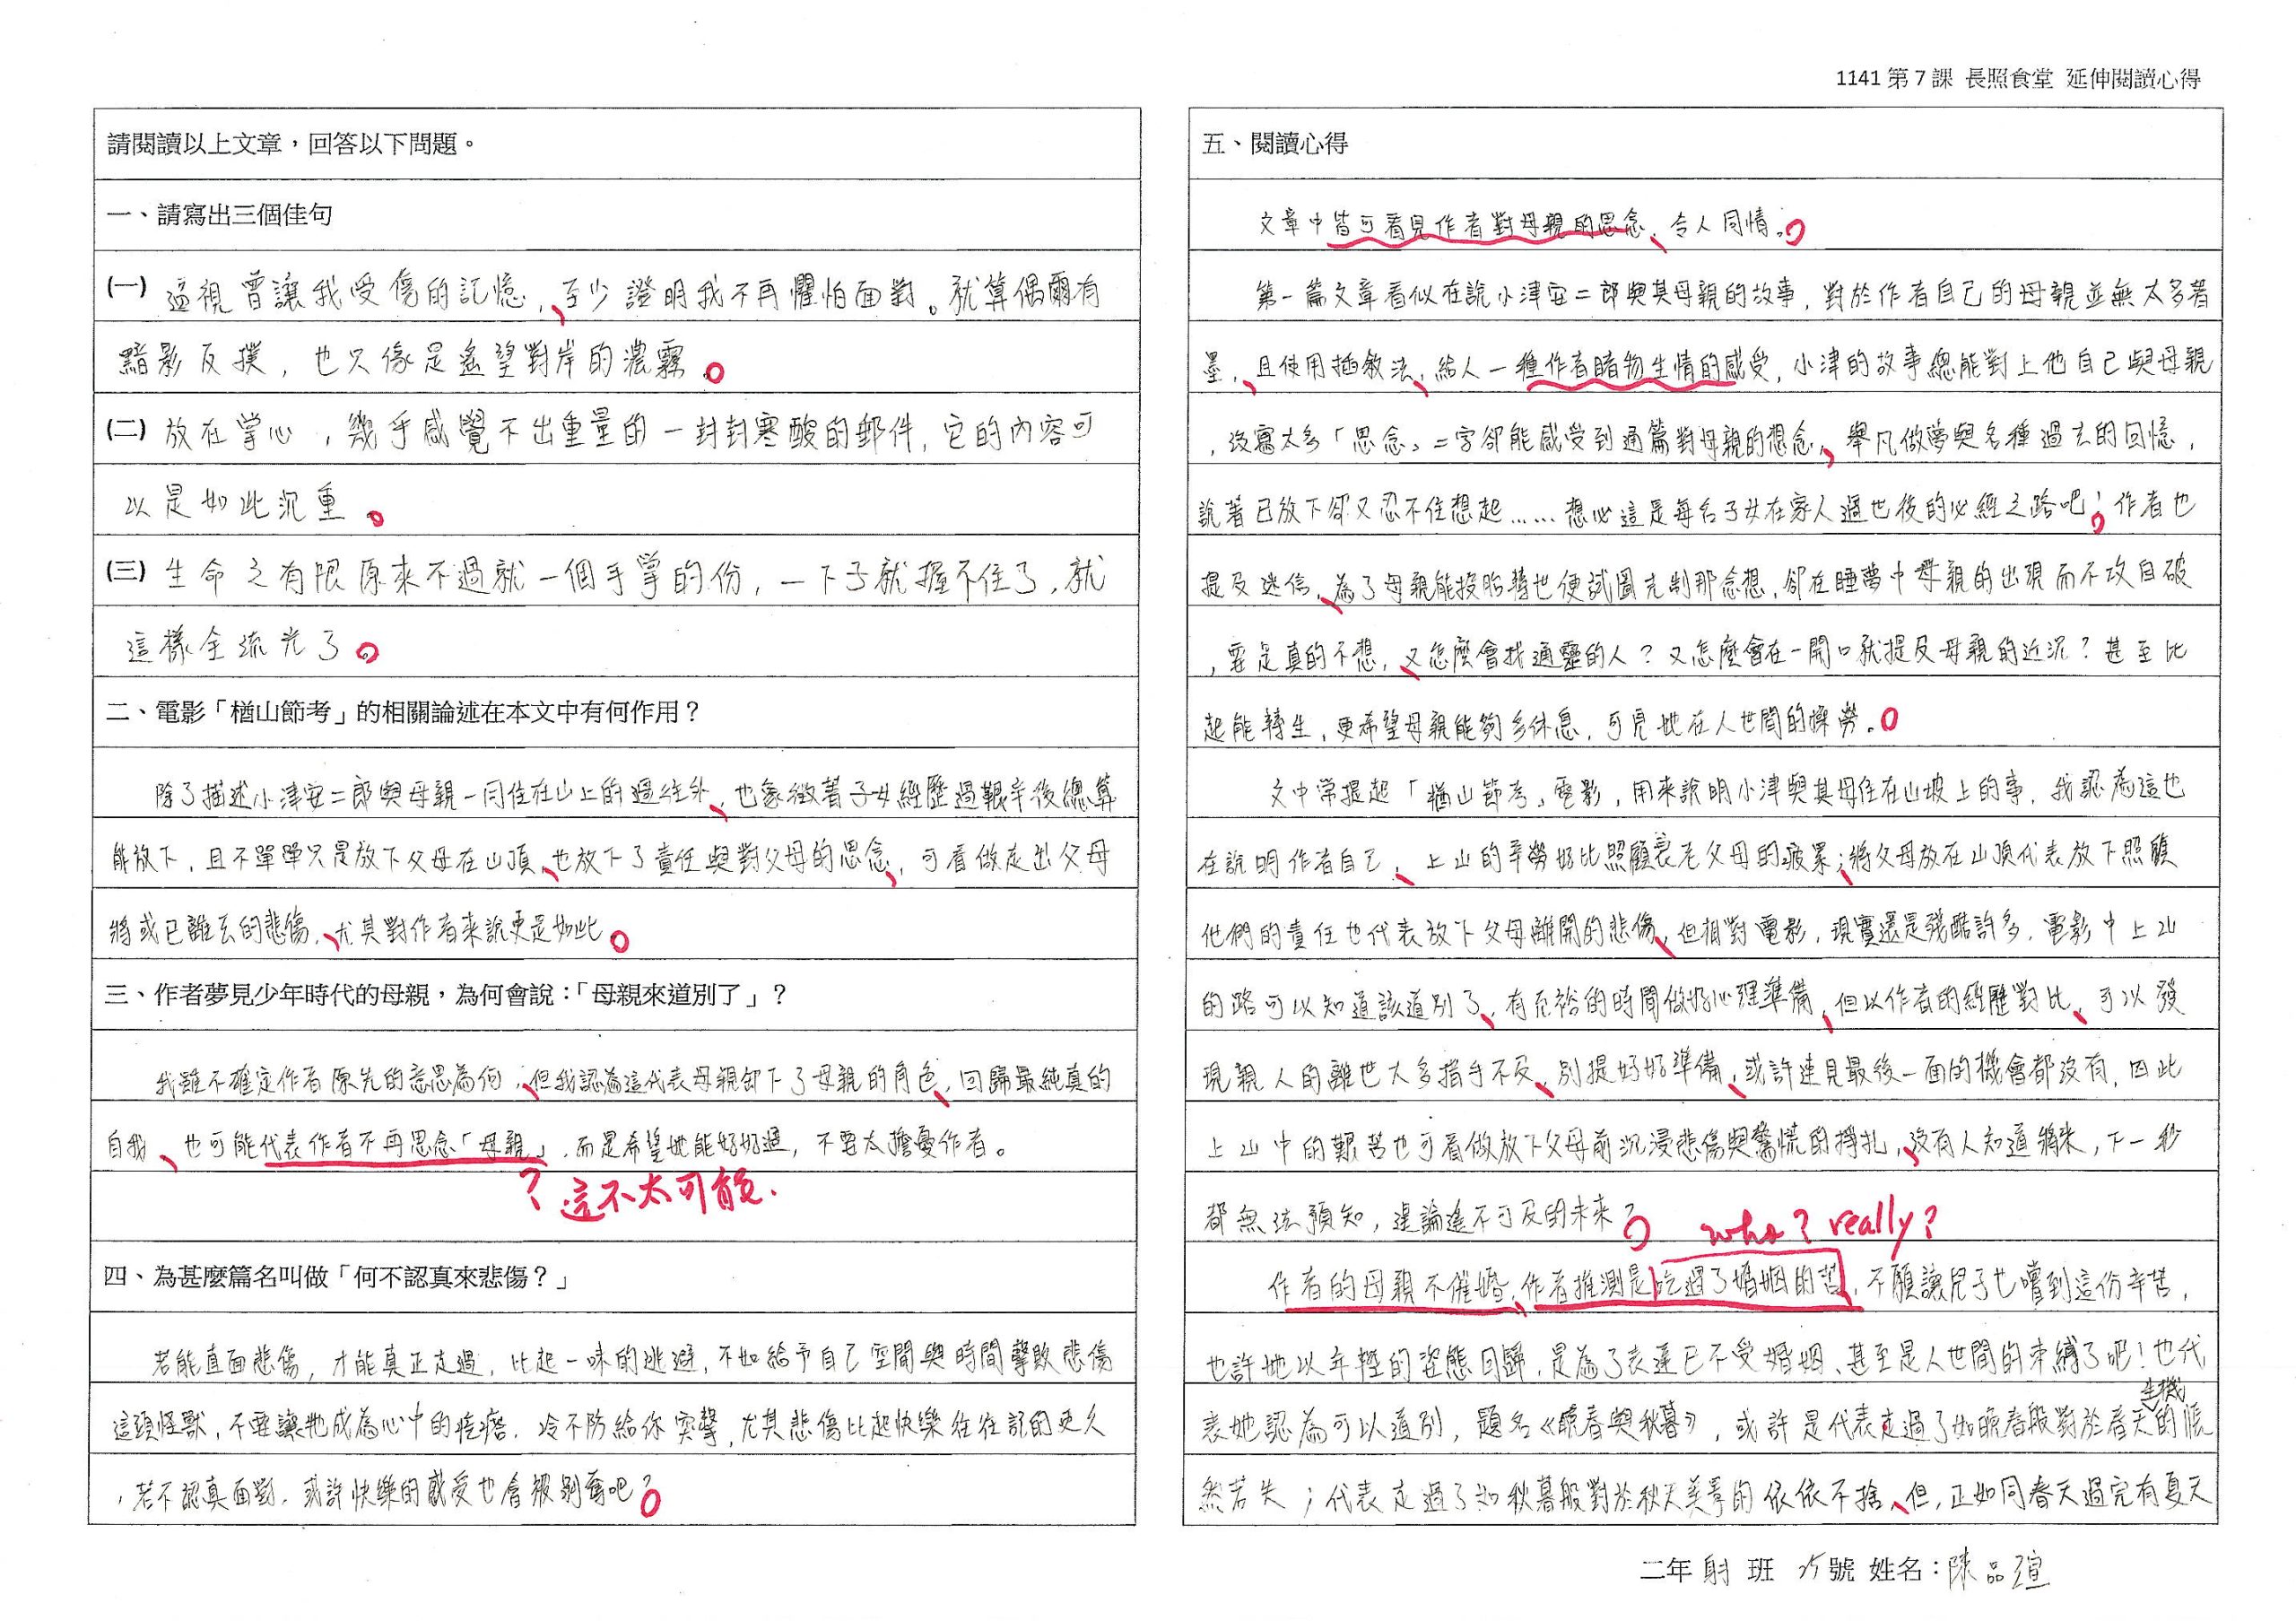 1141 第 7 課 長照食堂 延伸閱讀心得
請閱讀以上文章，回答以下問題。
一、請寫出三個佳句
(一) 逼視曾讓我受傷的記憶，至少證明我不再懼怕面對。就算偶爾有
黯影反撲，也只像是遙望對岸的濃霧。
(二) 放在掌心，幾乎感覺不出重量的一封封寒酸的郵件，它的內容可
以是如此沉重。
(三) 生命之有限原來不過就一個手掌的份，一下子就握不住了，就
這樣全流光了。
二、電影「楢山節考」的相關論述在本文中有何作用？
除了描述小津安二郎與母親一同住在山上的過往外，也象徵著子女經歷過艱辛後總算
能放下，且不單單只是放下父母在山頂，也放下了責任與對父母的思念，可看做走出父母
將或已離去的悲傷，尤其對作者來說更是如此。
三、作者夢見少年時代的母親，為何會說：「母親來道別了」？
我雖不確定作者原先的意思為何，但我認為這代表母親卸下了母親的角色，回歸最純真的
自我，也可能代表作者不再思念「母親」，而是希望她能好好過，不要太擔憂作者。
？這不太可能.
四、為甚麼篇名叫做「何不認真來悲傷？」
若能直面悲傷，才能真正走過，比起一味的逃避，不如給予自己空間與時間擊敗悲傷
這頭怪獸，不要讓牠成為心中的疙瘩，冷不防給你突擊，尤其悲傷比起快樂往往記的更久
，若不認真面對，或許快樂的感受也會被剝奪吧。
五、閱讀心得
文章中皆可看見作者對母親的思念，令人同情。
第一篇文章看似在說小津安二郎與其母親的故事，對於作者自己的母親並無太多著
墨，且使用插敘法，給人一種作者睹物生情的感受，小津的故事總能對上他自己與母親
，沒寫太多「思念」二字卻能感受到通篇對母親的想念，舉凡做夢與各種過去的回憶，
說著已放下卻又忍不住想起……想必這是每台子女在家人過世後的必經之路吧；作者也
提及迷信，為了母親能投胎轉世便試圖克制那念想，卻在睡夢中母親的出現而不攻自破
，要是真的不想，又怎麼會找通靈的人？又怎麼會在一開口就提及母親的近況？甚至比
起能轉生，更希望母親能夠多休息，可見她在人世間的操勞。
文中常提起「楢山節考」電影，用來說明小津與其母住在山坡上的事，我認為這也
在說明作者自己，上山的辛勞好比照顧衰老父母的疲累；將父母放在山頂代表放下照顧
他們的責任也代表放下父母離開的悲傷，但相對電影，現實還是殘酷許多，電影中上山
的路可以知道該道別了，有充裕的時間做好心理準備，但以作者的經歷對比，可以發
現親人的離世大多措手不及，別提好好準備，或許連見最後一面的機會都沒有，因此
上山中的艱苦也可看做放下父母前沉浸悲傷與驚慌的掙扎，沒有人知道將來，下一秒
都無法預知，遑論遙不可及的未來？
who? really?
作者的母親不催婚，作者推測是吃過了婚姻的苦，不願讓兒子也嚐到這份辛苦，
也許她以年輕的姿態回歸，是為了表達已不受婚姻、甚至是人世間的束縛了吧！也代
生機
表她認為可以道別，題名《晚春與秋暮》，或許是代表走過了如晚春般對於春天的悵
然若失；代表走過了如秋暮般對於秋天美學的依依不捨，但，正如同春天過完有夏天
二年 射 班 25號 姓名：陳品瑄